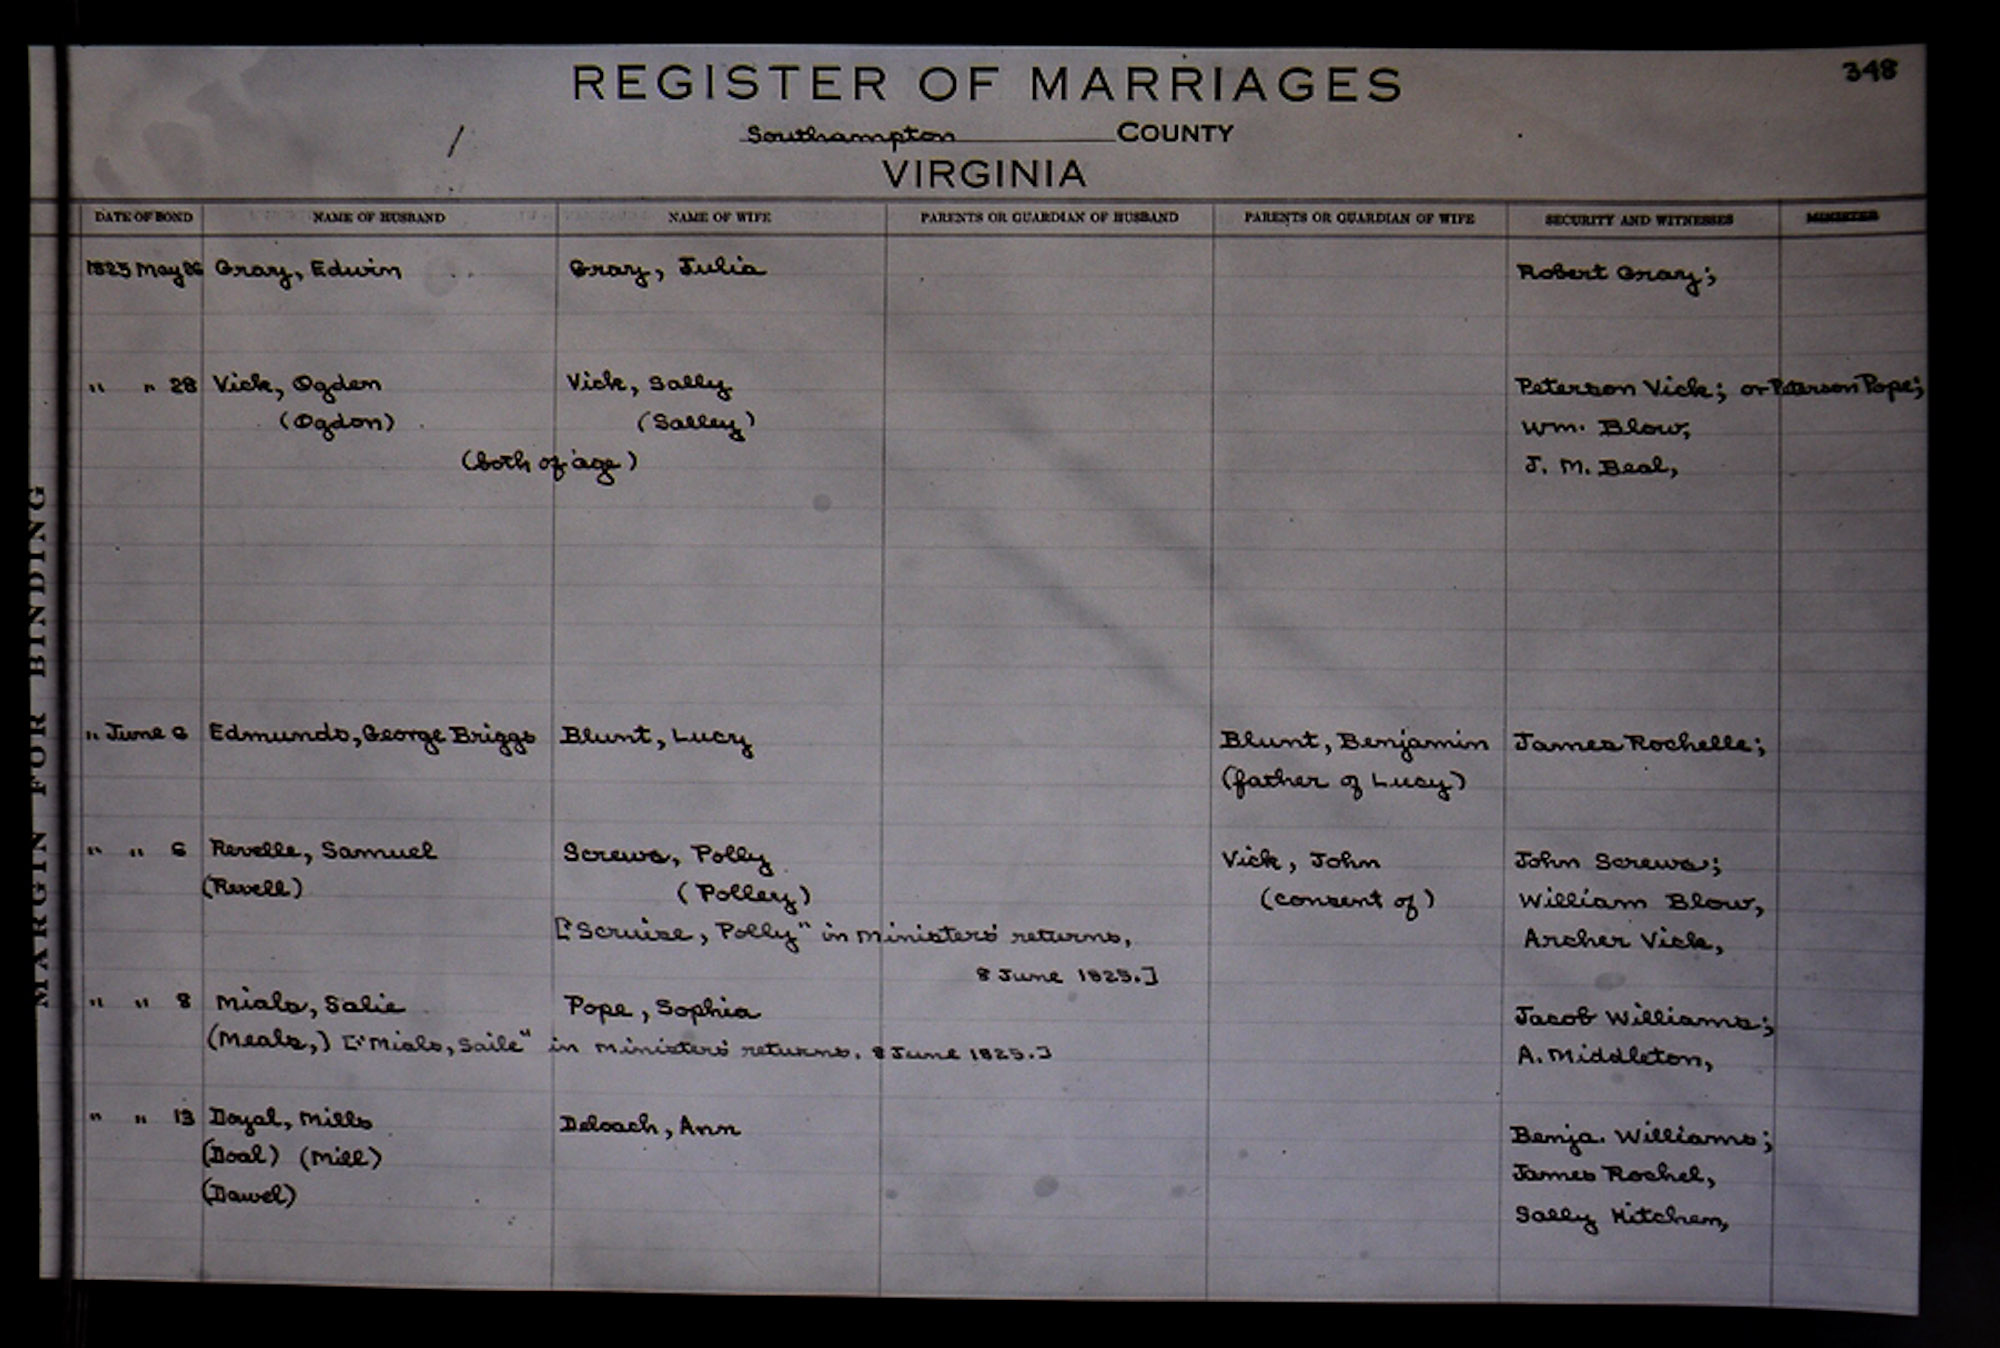 348
REGISTER OF MARRIAGES
Southampton COUNTY
VIRGINIA
MARGIN FOR BINDING
DATE OF BOND NAME OF HUSBAND NAME OF WIFE PARENTS OR GUARDIAN OF HUSBAND PARENTS OR GUARDIAN OF WIFE SECURITY AND WITNESSES MINISTER
1825 May 26 Gray, Edwin Gray, Julia Robert Gray;
" " 28 Vick, Ogden Vick, Sally Peterson Vick; or Peterson Pope;
(Ogdon) (Salley) Wm. Blow,
(both of age) J. M. Beal,
" June 6 Edmunds, George Briggs Blunt, Lucy Blunt, Benjamin James Rochelle;
(father of Lucy)
" " 6 Revelle, Samuel Screws, Polly Vick, John John Screws;
(Revell) (Polley) (consent of) William Blow,
["Scruise, Polly" in Ministers' returns, Archer Vick,
8 June 1825.]
" " 8 Mials, Salie Pope, Sophia Jacob Williams;
(Meals,) ["Mials, Saile" in Ministers' returns. 8 June 1825.] A. Middleton,
" " 13 Doyal, Mills Deloach, Ann Benja. Williams;
(Doal) (Mill) James Rochel,
(Dawel) Sally Kitchen,